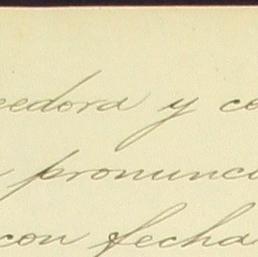 eedora y ce
pronunci
con fecha